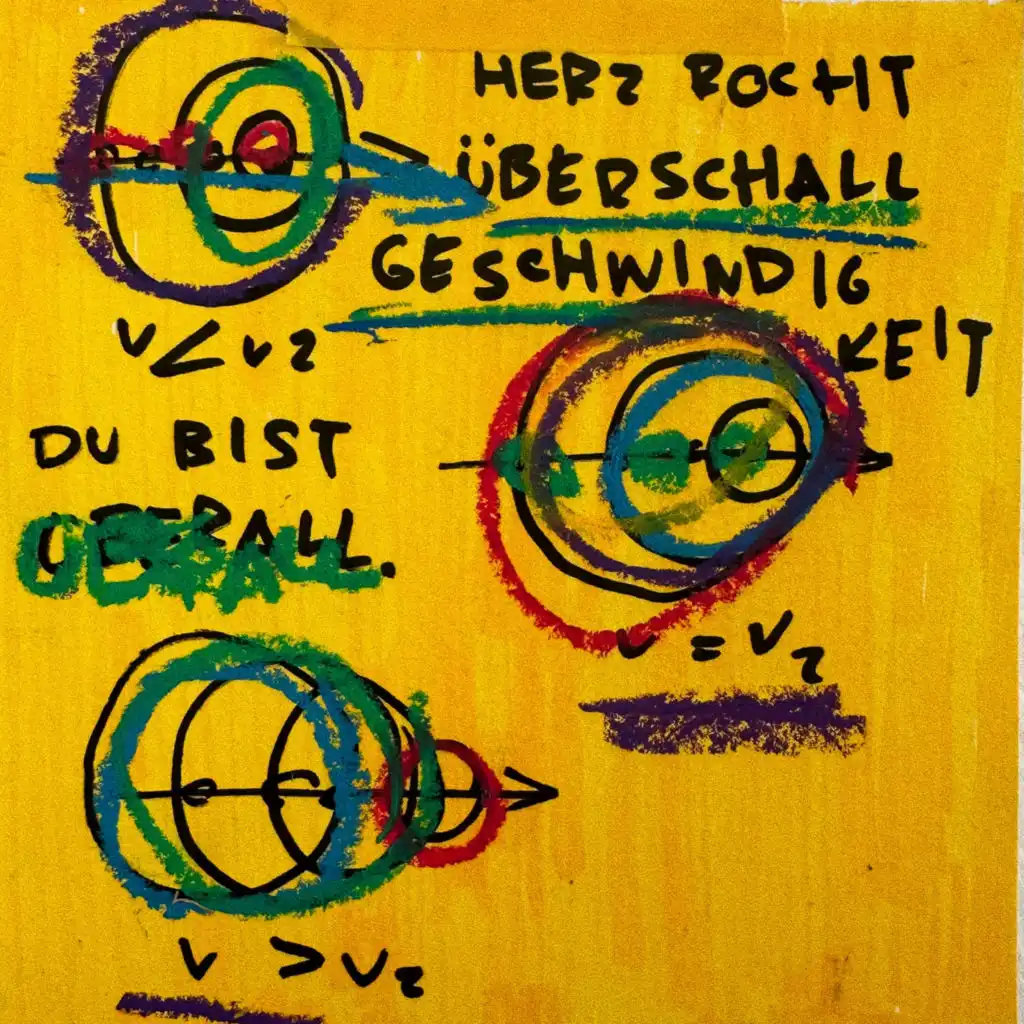 HERZ ROCHT
ÜBERSCHALL
GESCHWINDIG
KEIT
v < v2
DU BIST
UEBERALL.
v = v2
v > v2